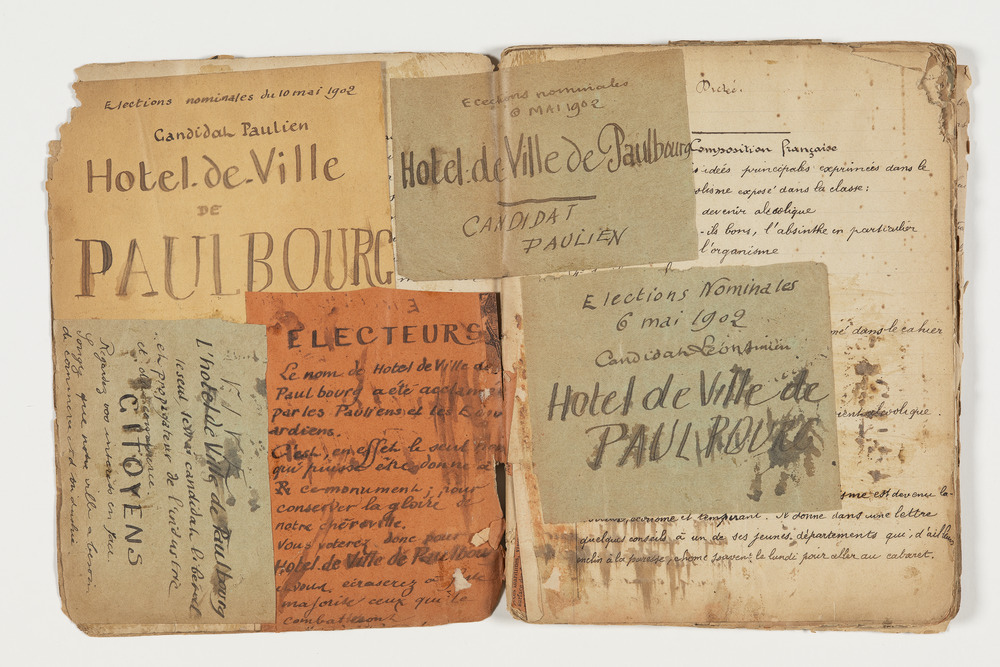 Elections nominales du 10 mai 1902
Candidat Paulien
Hotel-de-Ville
DE
PAULBOURG
Elections nominales
6 MAI 1902
Hotel-de Ville de Paulbourg
CANDIDAT
PAULIEN
Elections Nominales
6 mai 1902
Candidat
Hotel de Ville de
PAULBOURG
ELECTEURS
Le nom de Hotel de Ville de
Paulbourg a été acclamé
par les Pauliens et les
ardiens.
C'est, en effet le seul nom
qui puisse être donné à
ce monument; pour
conserver la gloire de
notre chère ville.
Vous voterez donc pour
Hotel de Ville de Paulbou
et vous écraserez
majorité ceux qui le
combattent
L'hotel de Ville de Paulbourg
le seul candidat libéral
et propagateur de l'industrie
et du commerce.
CITOYENS
Regardez vos intérêts en face
Songez que notre ville a besoin
de commerce et d'industrie
Dictée.
Composition française
idées principales exprimées dans le
olisme exposé dans la classe:
devenir alcoolique
-ils bons, l'absinthe en particulier
l'organisme
mé dans le cahier
ient alcoolique.
sme est devenu la-
et tempérant. Il donne dans une lettre
quelques conseils à un de ses jeunes départements qui, d'ailleurs
enclin à la paresse, chôme souvent le lundi pour aller au cabaret.